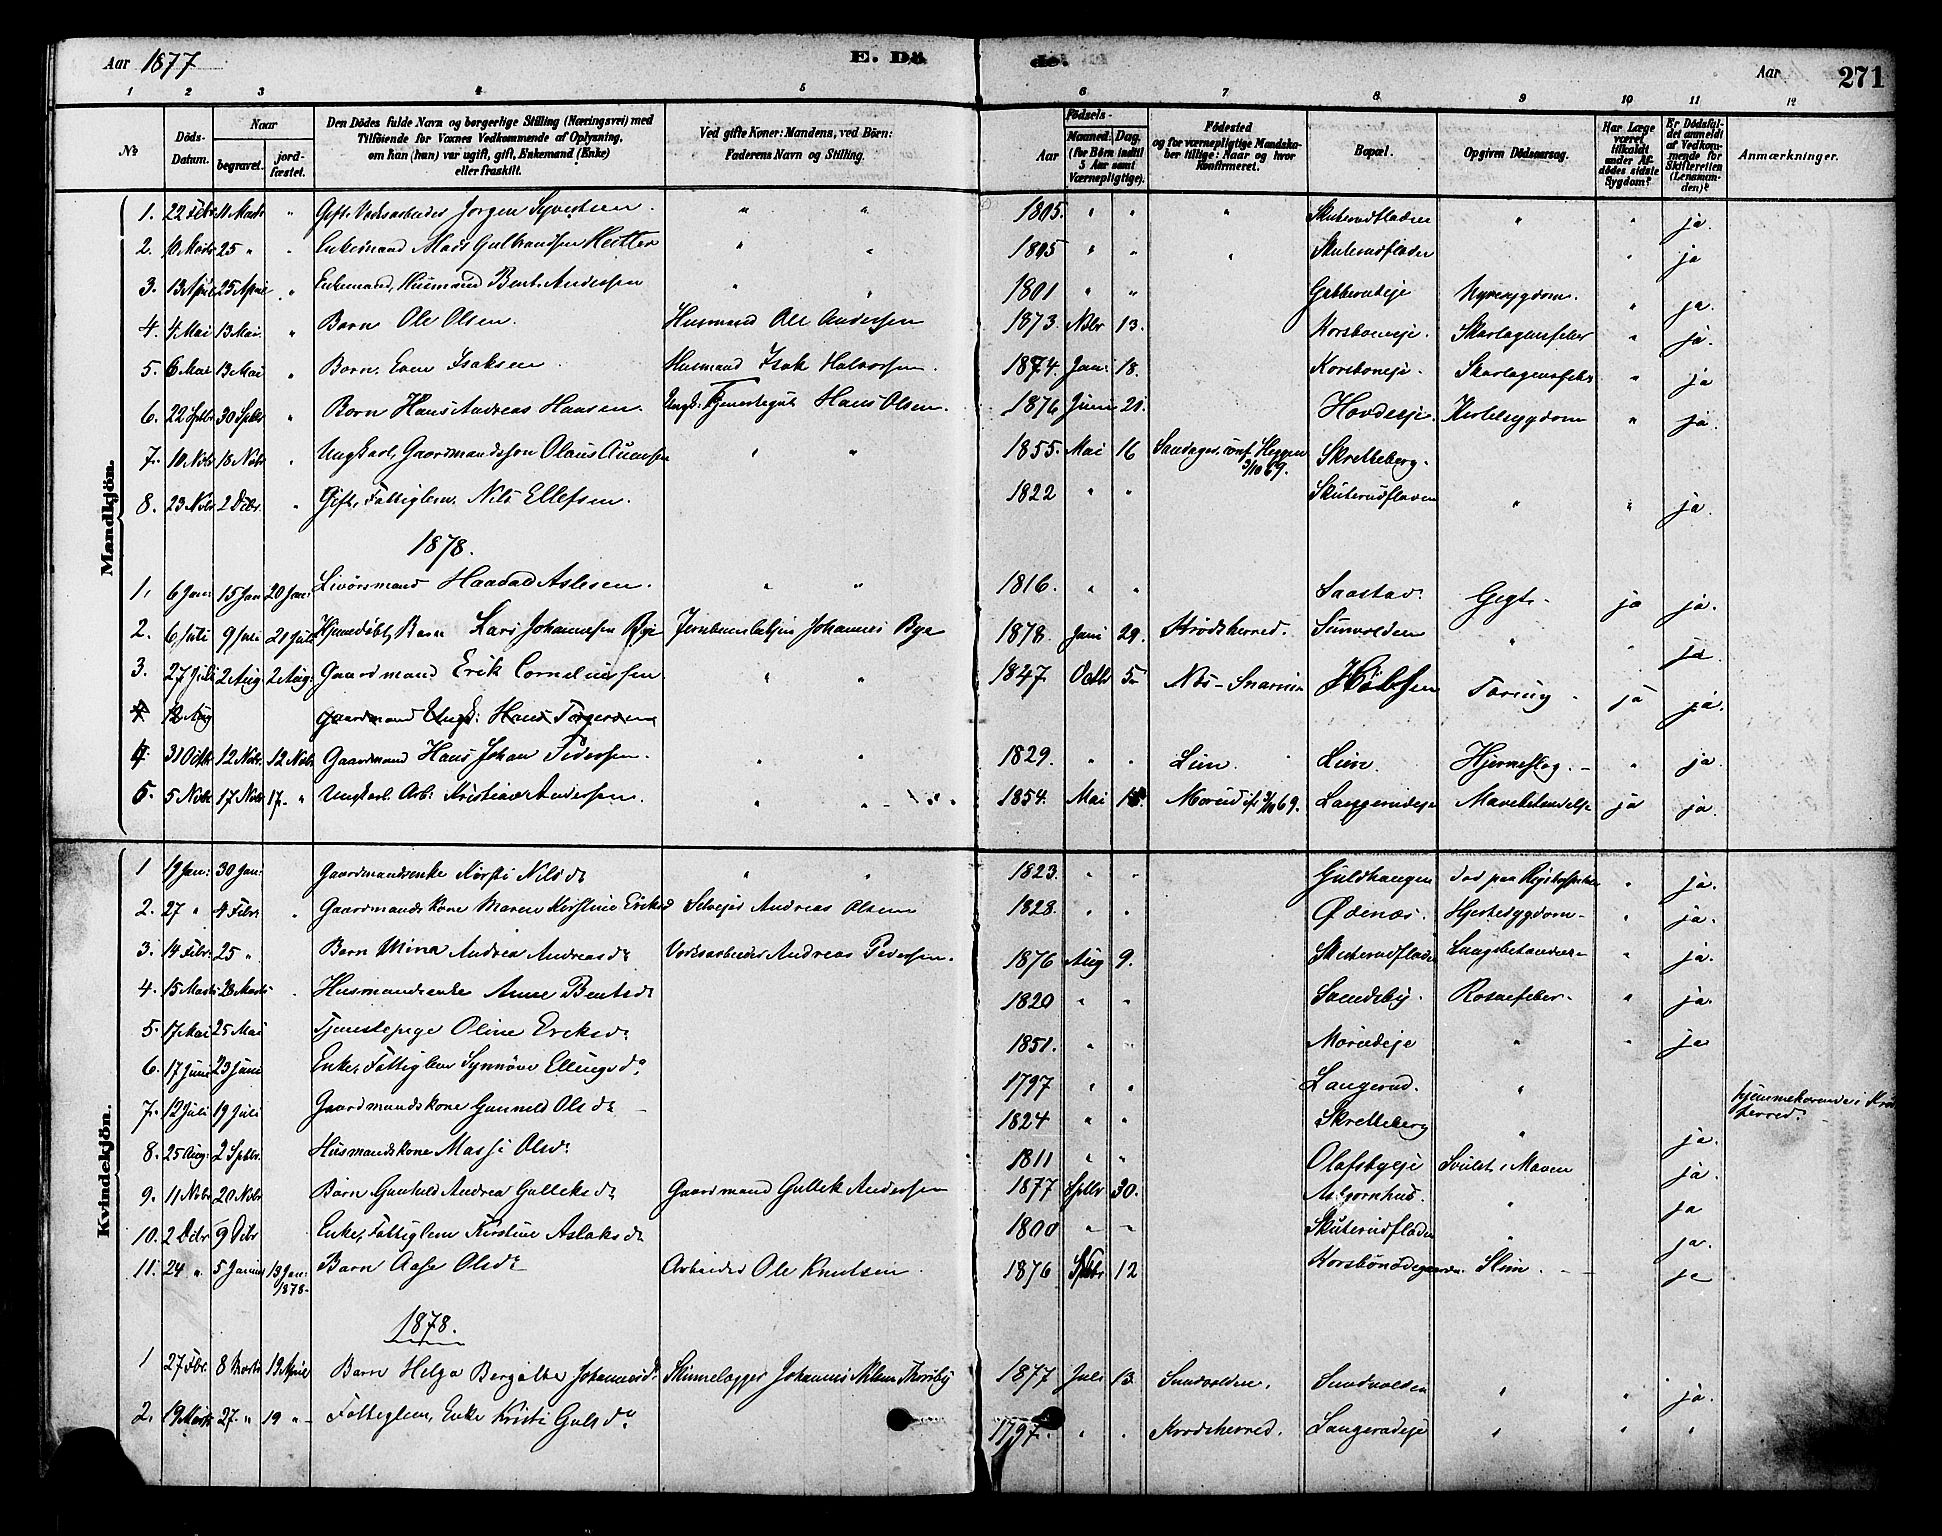 Aar 1877 E. Dö de. Aar 271
1 2 3 4 5 6 7 8 9 10 11 12
No Döds-Datum. Naar begravet. jord-fæstet. Den Dödes fulde Navn og borgerlige Stilling (Næringsvei) med Tilföiende for Voxnes Vedkommende af Oplysning, om han (hun) var ugift, gift, Enkemand (Enke) eller fraskilt. Ved gifte Koner: Mandens, ved Börn: Faderens Navn og Stilling. Födsels- Aar Maaned: Dag. (for Börn indtil 5 Aar samt Værnepligtige). Födested og for værnepligtige Mandska-ber tillige: Naar og hvor Konfirmeret. Bopæl. Opgiven Dödsaarsag. Har Læge været tilkaldt under Af-dödes sidste Sygdom? Er Dödsfal-det anmeldt af Vedkom-mende for Skifteretten (Lensman-den)? Anmærkninger.
Mandkjön.
1. 22 Febr 11 Marts " Gift. Værksarbeider Jørgen Syvertsen " " 1805. " " " Skuterudfladen " " ja.
2. 10 Marts 25 " " Enkemand Mads Gulbrandsen " " 1805 " " " Skuterudfladen " ja
3. 13 April 25 April " Enkemand, Husmand Bent Anderssen " " 1801 " " Gubberudeje Nyresygdom. " ja.
4. 4 Mai 13 Mai. " Barn Ole Olsen. Husmand Ole Anderssen 1873. Nvbr 13. Korsboneje. Skarlagensfeber " ja.
5. 6 Mai 13 Mai " Barn. Even Isaksen Husmand Isak Halvorssen. 1874. Jan: 18. Korsboneje. Skarlagensfeber " ja
6. 22 Sptbr 30 Sptbr " Barn Hans Andreas Hansen. Ungk. Tjenestegut Hans Olsen. 1876 Juni 21. Hovdeeje. Kirtelsygdom " ja.
7. 10 Nvbr 18 Nvbr " Ungkarl, Gaardmandssøn Olaus " " 1855. Mai 16 conf. Heggen 3/10 69. Skretteberg.
8. 23 Nvbr 2 Debr. " Gift, Fattiglem. Nils Ellefsen. 1822 " " Skuterudfladen " " ja.
1878.
1. 6 Jan: 15 Jan 20 Jan: Livörsmand Haavald Aslesen. " " 1816. " " Saastad. Gigt. ja ja.
2. 6 Juli 9 Juli 21 Juli Hjemmedøbt, Barn Lars Johannesen Bye Johannes Bye 1878. Juni 29. Krødsherred. Sundvolden " " ja
3. 27 Juli 2 Aug 2 Aug: Gaardmand Erik Corneliussen " " 1847 Octbr 5 Snarum Tæring ja ja.
4 12 Aug Gaardmand Ungk: Hans Torgersen
4. 31 Octb 12 Nvbr. 12 Nvbr Gaardmand Hans Johan Pederssen. " " 1829. " " Lien. Lien. Hjerneslag. " ja.
5. 5 Nvbr 17 Nvbr 17. " Ungkarl. Arb: Kristian Andersen. " " 1854. Mai Morud 69. Langerudeje Mavebetændelse ja ja.
Kvindekjön.
1 19 Jan: 30 Jan: Gaardmandsenke Kirsti Nilsdr " " 1823. " " Guldhaugen død paa Rigshospitalet " ja.
2. 27 " 4 Febr. " Gaardmandskone Maren Kirstine Eriksd Selveier Andreas Olsen 1828. " " Ødenæs. Hjertesygdom " ja.
3. 14 Febr. 25 " Barn Mina Andrea Andreasdr Værksarbeider Andreas Pedersen. 1876 Aug 9. Skuterudfladen Lungebetændelse " ja.
4. 15 Marts 28 Marts " Husmandsenke Anne Bentsdr 1820 " " Sandsby. Rosenfeber. " ja.
5. 17 Mai 25 Mai Tjenestepige Oline Eriksdr 1851. " " Morudeje " " ja
6. 17 Juni 23 Juni Enke, Fattiglem Synnøve Ellingsdr. 1797 " " Langerud. "
7. 12 Juli 19 Juli Gaardmandskone Gunneld Olsdr 1824 " " Skretteberg " ja. hjemmehørende i Krødsherred.
8. 25 Aug: 2 Sptbr. Husmandskone Massi Olsdr 1811 " " Olafsbyeje Svulst i Maven ja.
9. 11 Nvbr 20 Nvbr Barn Gunhild Andrea Gulleksdr Gaardmand Gullik Andersen 1877 Sptbr 30. Asbjornhus. " ja
10. 2 Debr 9 Debr Enke, Fattiglem Kirstine Aslaksdr 1800 " " Skuterudfladen " ja.
11. 24 " 5 Januar 13 Jan: 1878. Barn Aase Olsdr Arbeider Ole Knutsen. 1876 Sptbr 12 Slim. ja
1878.
1 27 Febr. 8 Marts 19 April Barn Helga Johannesdr Skinnelægger Johannes 1877 Juli 13. Sundvolden. Sundvolden " " ja.
2. 19 Marts 27 " 19 " Fattiglem, Enke Kristi Gulsdr 1797. " " Krødsherred. Langerudeje " " "